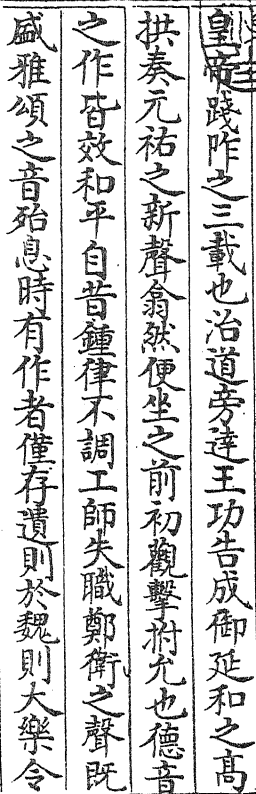 皇帝踐阼之三載也治道旁達王功告成御延和之髙
拱奏元祐之新聲翕然便坐之前初觀擊拊允也德音
之作皆效和平自昔鍾律不調工師失職鄭衛之聲既
盛雅頌之音殆息時有作者僅存遺則於魏則大樂令